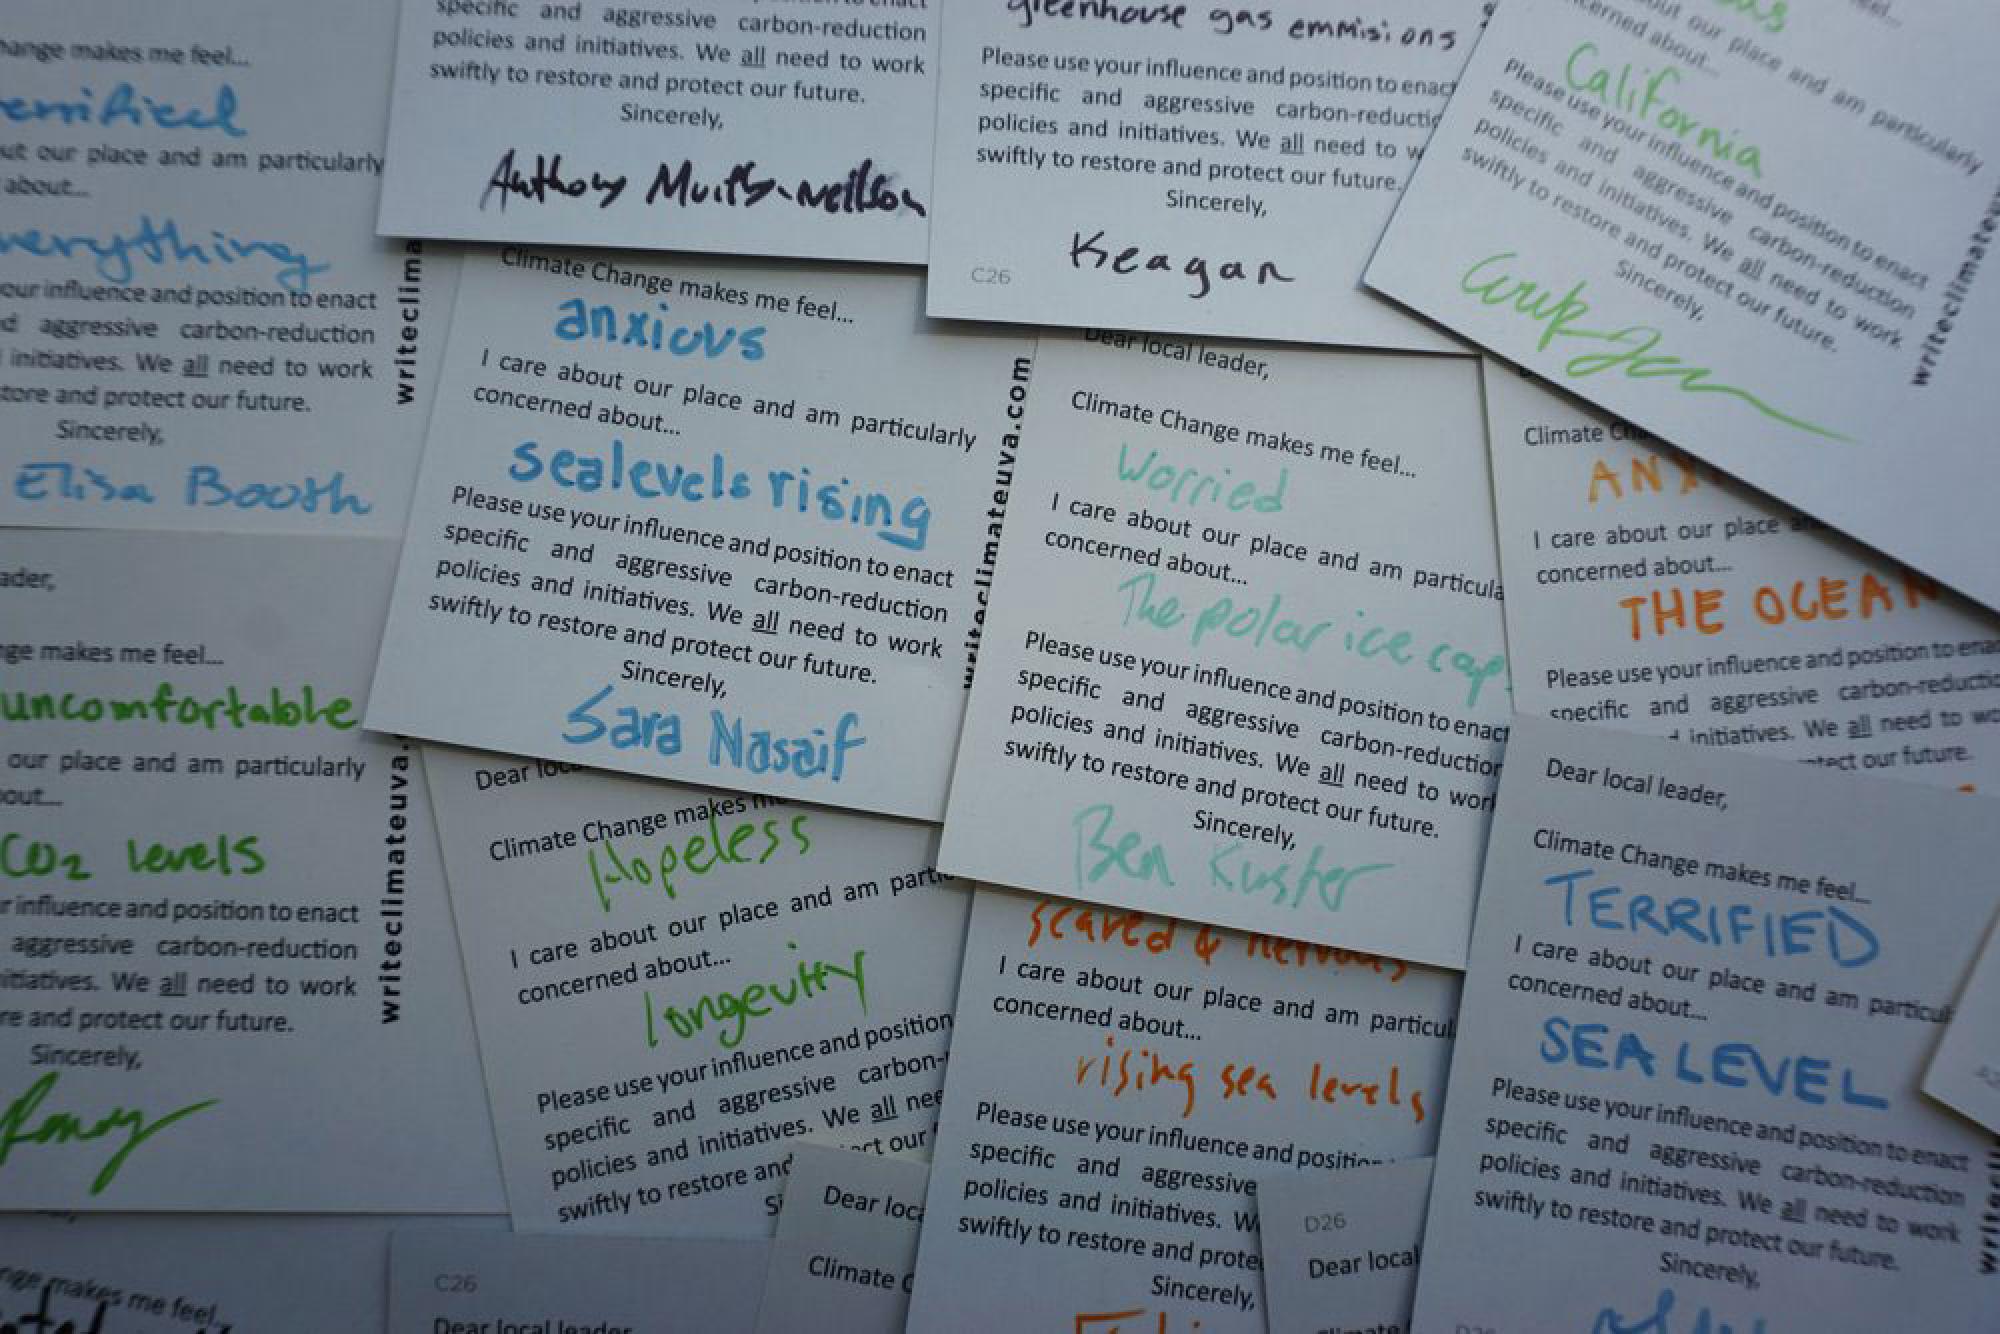 hange makes me feel...
errified
ut our place and am particularly
about...
verything
our influence and position to enact
d aggressive carbon-reduction
initiatives. We all need to work
tore and protect our future.
Sincerely,
Elisa Booth
writeclima
specific and aggressive carbon-reduction
policies and initiatives. We all need to work
swiftly to restore and protect our future.
Sincerely,
Anthony
greenhouse gas emmisions
Please use your influence and position to enact
specific and aggressive carbon-reductio
policies and initiatives. We all need to w
swiftly to restore and protect our future.
Sincerely,
Keagan
C26
out our place and am particularly
cerned about...
California
Please use your influence and position to enact
specific and aggressive carbon-reduction
policies and initiatives. We all need to work
swiftly to restore and protect our future.
Sincerely,
writeclimateu
Climate Change makes me feel...
anxious
I care about our place and am particularly
concerned about...
sealevels rising
Please use your influence and position to enact
specific and aggressive carbon-reduction
policies and initiatives. We all need to work
swiftly to restore and protect our future.
Sincerely,
Sara Nasaif
writeclimateuva.com
Dear local leader,
Climate Change makes me feel...
Worried
I care about our place and am particula
concerned about...
The polar ice cap
Please use your influence and position to enact
specific and aggressive carbon-reduction
policies and initiatives. We all need to work
swiftly to restore and protect our future.
Sincerely,
Ben Kuster
Climate Ch
ANX
I care about our place a
concerned about...
THE OCEAN
Please use your influence and position to enac
specific and aggressive carbon-reductio
initiatives. We all need to wo
tect our future.
ader,
ge makes me feel...
uncomfortable
our place and am particularly
out...
CO2 levels
r influence and position to enact
aggressive carbon-reduction
itiatives. We all need to work
re and protect our future.
Sincerely,
writeclimateuva.
Dear loc
Climate Change makes me
Hopeless
I care about our place and am partic
concerned about...
longevity
Please use your influence and position
specific and aggressive carbon-
policies and initiatives. We all nee
swiftly to restore and
ect our
Si
scared & nervous
I care about our place and am particul
concerned about...
rising sea levels
Please use your influence and position
specific and aggressive
policies and initiatives. W
swiftly to restore and prote
Sincerely,
Dear local leader,
Climate Change makes me feel...
TERRIFIED
I care about our place and am particul
concerned about...
SEA LEVEL
Please use your influence and position to enact
specific and aggressive carbon-reduction
policies and initiatives. We all need to work
swiftly to restore and protect our future.
Sincerely,
D26
nge makes me feel...
C26
Dear local leader
Dear loca
Climate C
D26
Dear local
climate